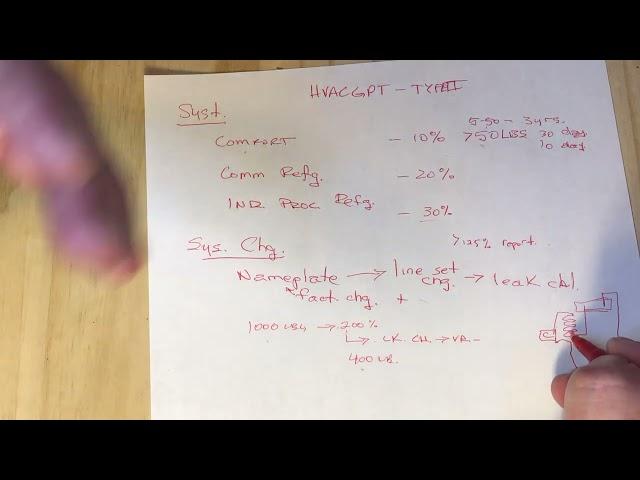 HVACGPT - TYPE III
Syst.
5-50 - 3 yrs.
COMFORT - 10% >50LBS 30 day
10 day
Comm Refg. - 20%
IND PROC. Refg. - 30%
>125% report.
Sys. Chg.
Nameplate → line set chg. → leak chk.
*fact chg. +
1000 LBS → 200%
→ LK. CH. → VR-
400 LB.
C